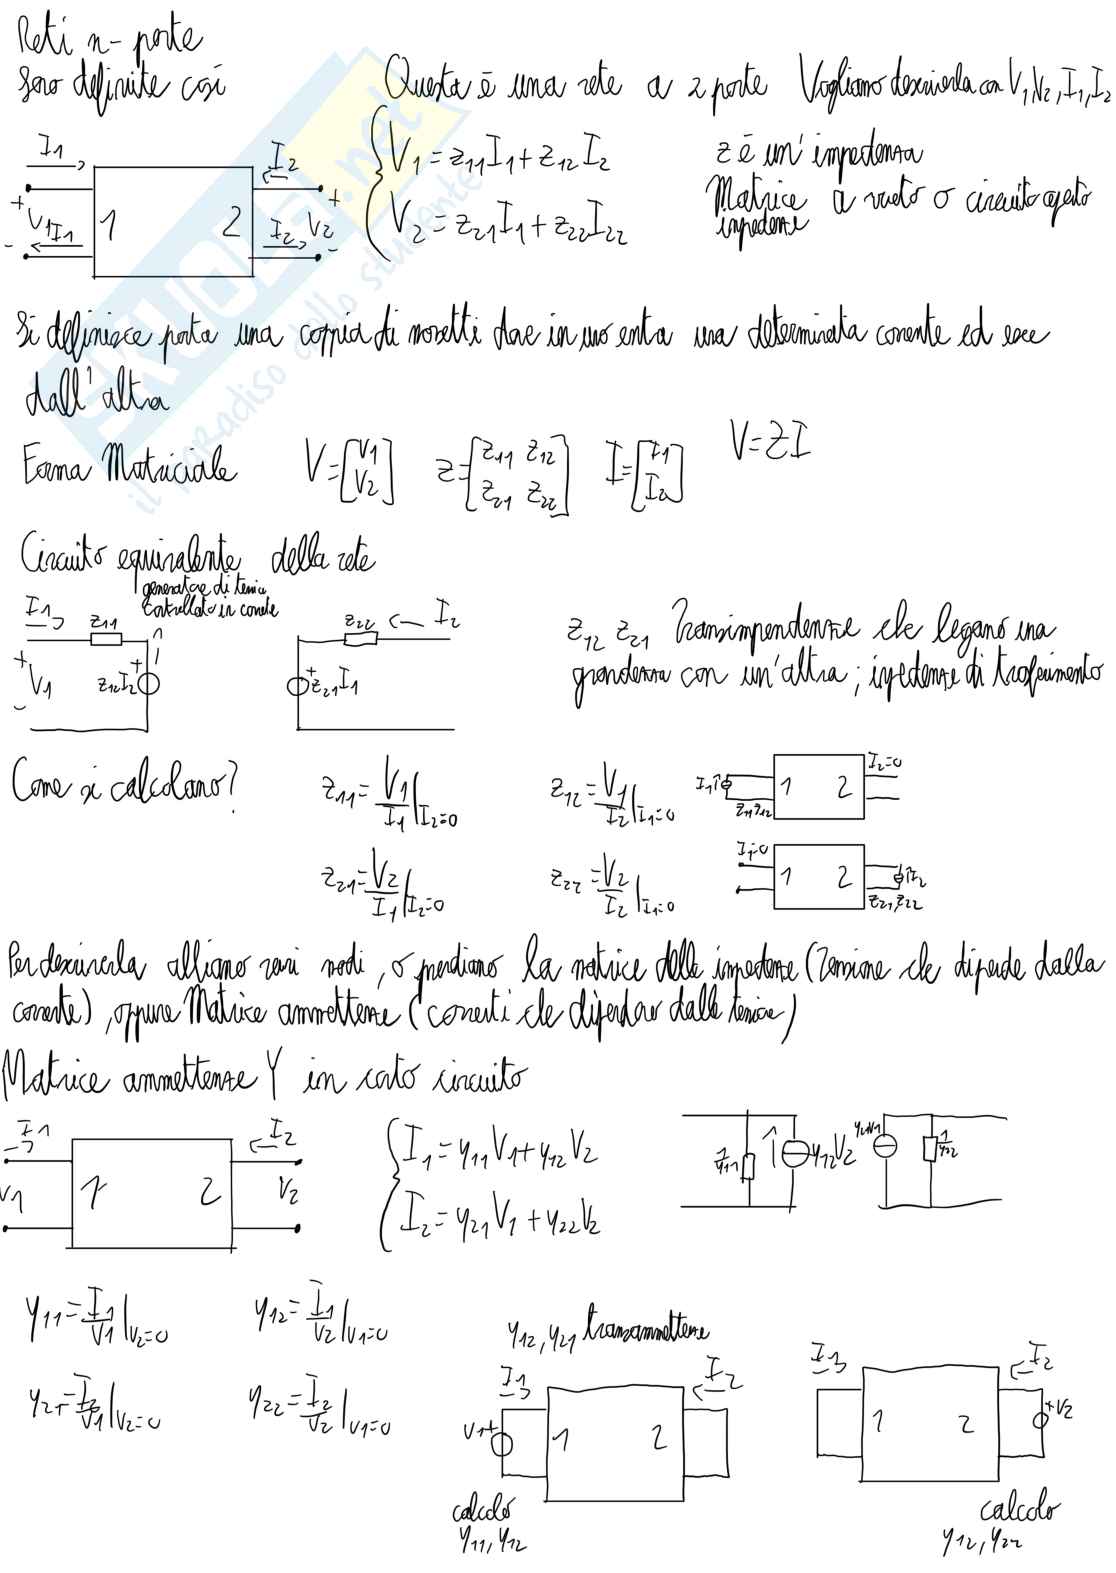 Reti n-porte
Sono definite così
Questa è una rete a 2 porte Vogliamo descriverla con V1,V2,I1,I2
I1
I2
+
V1
I1
-
1
2
I2
V2
+
-
V1 = z11I1 + z12I2
V2 = z21I1 + z22I22
z è un'impedenza
Matrice a vuoto o circuito aperto
impedenze
Si definisce porta una coppia di morsetti dove in uno entra una determinata corrente ed esce
dall'altra
Forma Matriciale V=[V1 V2] z=[z11 z12 z21 z22] I=[I1 I2] V=ZI
Circuito equivalente della rete
generatore di tensione
controllato in corrente
I1 z11
+ V1 -
z12I2 +
z22 I2
+ z21I1
z12 z21 Transimpendenze che legano una
grandezza con un'altra; impedenze di trasferimento
Come si calcolano?
z11 = V1/I1 | I2=0
z12 = V1/I2 | I1=0
I1 1 2 I2=0
z11,z12
z21 = V2/I1 | I2=0
z22 = V2/I2 | I1=0
I1=0 1 2 I2
z21,z22
Per descriverla abbiamo vari modi, o prendiamo la matrice delle impedenze (Tensione che dipende dalla
corrente), oppure Matrice ammettenze (correnti che dipendono dalle tensione)
Matrice ammettenze Y in corto circuito
I1
I2
V1
1
2
V2
I1 = y11V1 + y12V2
I2 = y21V1 + y22V2
1/y11
y12V2
y21V1
1/y22
y11 = I1/V1 | V2=0
y12 = I1/V2 | V1=0
y21 = I2/V1 | V2=0
y22 = I2/V2 | V1=0
y12, y21 transammettenze
I1
I2
V1+
1
2
calcolo
y11, y12
I1
I2
1
2
+V2
calcolo
y12, y22
SKUOLA.net
il paradiso dello studente